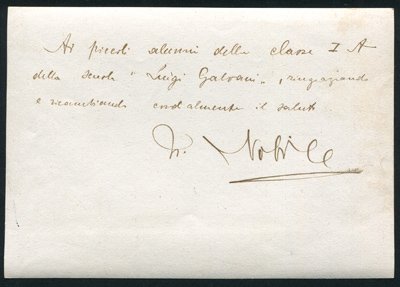 Ai piccoli alunni della classe I A
della scuola "Luigi Galvani", ringraziando
e ricambiando cordialmente il saluto.
Nobile